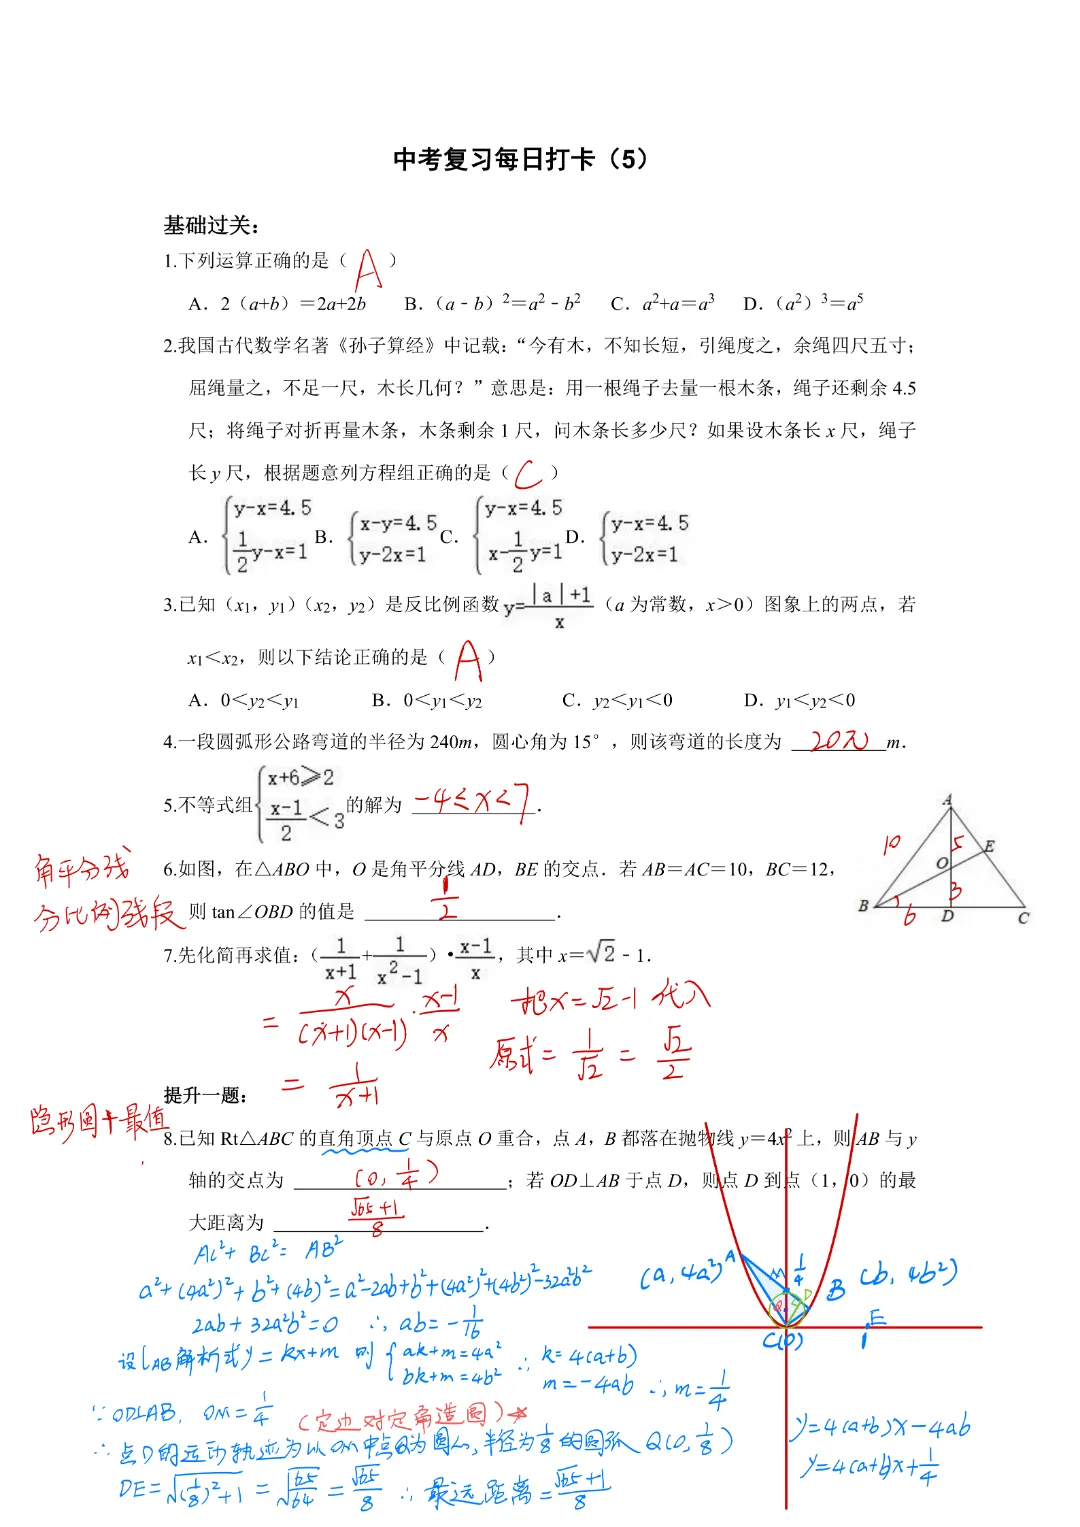 中考复习每日打卡（5）
基础过关：
1.下列运算正确的是（ A ）
A．2（a+b）=2a+2b B．（a﹣b）²=a²﹣b² C．a²+a=a³ D．（a²）³=a⁵
2.我国古代数学名著《孙子算经》中记载：“今有木，不知长短，引绳度之，余绳四尺五寸；
屈绳量之，不足一尺，木长几何？”意思是：用一根绳子去量一根木条，绳子还剩余 4.5
尺；将绳子对折再量木条，木条剩余 1 尺，问木条长多少尺？如果设木条长 x 尺，绳子
长 y 尺，根据题意列方程组正确的是（ C ）
A．{y-x=4.5 1/2y-x=1 B．{x-y=4.5 y-2x=1 C．{y-x=4.5 x-1/2y=1 D．{y-x=4.5 y-2x=1
3.已知（x₁，y₁）（x₂，y₂）是反比例函数 y=|a|+1/x （a 为常数，x＞0）图象上的两点，若
x₁＜x₂，则以下结论正确的是（ A ）
A．0＜y₂＜y₁ B．0＜y₁＜y₂ C．y₂＜y₁＜0 D．y₁＜y₂＜0
4.一段圆弧形公路弯道的半径为 240m，圆心角为 15°，则该弯道的长度为 20π m．
5.不等式组{x+6≥2 x-1/2＜3 的解为 -4≤x<7 ．
角平分线
分比例线段
6.如图，在△ABO 中，O 是角平分线 AD，BE 的交点．若 AB＝AC＝10，BC＝12，
则 tan∠OBD 的值是 1/2 ．
A
10 5 E
O
3
B 6 D C
7.先化简再求值：（1/x+1+1/x²-1）•x-1/x，其中 x=√2﹣1．
= x/(x+1)(x-1) · x-1/x 把x=√2-1 代入
= 1/x+1 原式= 1/√2 = √2/2
提升一题：
隐形圆+最值
8.已知 Rt△ABC 的直角顶点 C 与原点 O 重合，点 A，B 都落在抛物线 y＝4x² 上，则 AB 与 y
轴的交点为 (0, 1/4) ；若 OD⊥AB 于点 D，则点 D 到点（1，0）的最
大距离为 √65+1/8 ．
AC²+BC²=AB²
a²+(4a²)²+b²+(4b)²=a²-2ab+b²+(4a²)²+(4b²)²-32a²b²
2ab+32a²b²=0 ∴ab=-1/16
设lAB解析式y=kx+m 则{ak+m=4a² bk+m=4b² ∴k=4(a+b) m=-4ab ∴m=1/4
∵OD⊥AB, OM=1/4 (定边对定角造圆)
∴点D的运动轨迹为以OM中点Q为圆心,半径为1/8的圆弧 Q(0,1/8)
DE=√(1/8)²+1 = √65/64 = √65/8 ∴最远距离=√65+1/8
(a, 4a²) A M 1/4 D B (b, 4b²)
Q
C(O) 1 E
y=4(a+b)x-4ab
y=4(a+b)x+1/4